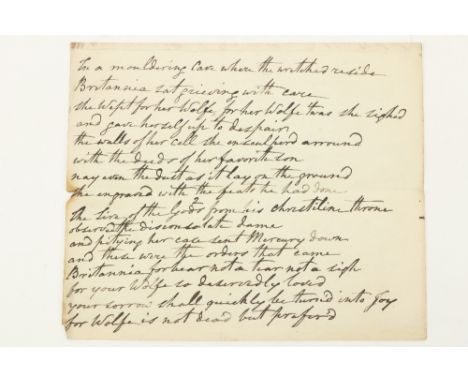 In a mouldering Cave where the wretched reside
Britannia sat grieving with care
she Wept for her Wolfe, for her Wolfe twas she sighed
and gave herself up to despair
the walls of her cell she ensculperd arround
with the deeds of her favorite son
nay even the dust as it lay on the ground
she engraved with the feats he had done
the Sire of the Gods from his christiline throne
observed the disconsolate dame
and pitying her case sent Mercury down
and these were the orders that came
Britannia forbear not a tear not a sigh
for your Wolfe so deservedly loved
your sorrow shall quickly be turned into Joy
for Wolfe is not dead but prefer'd